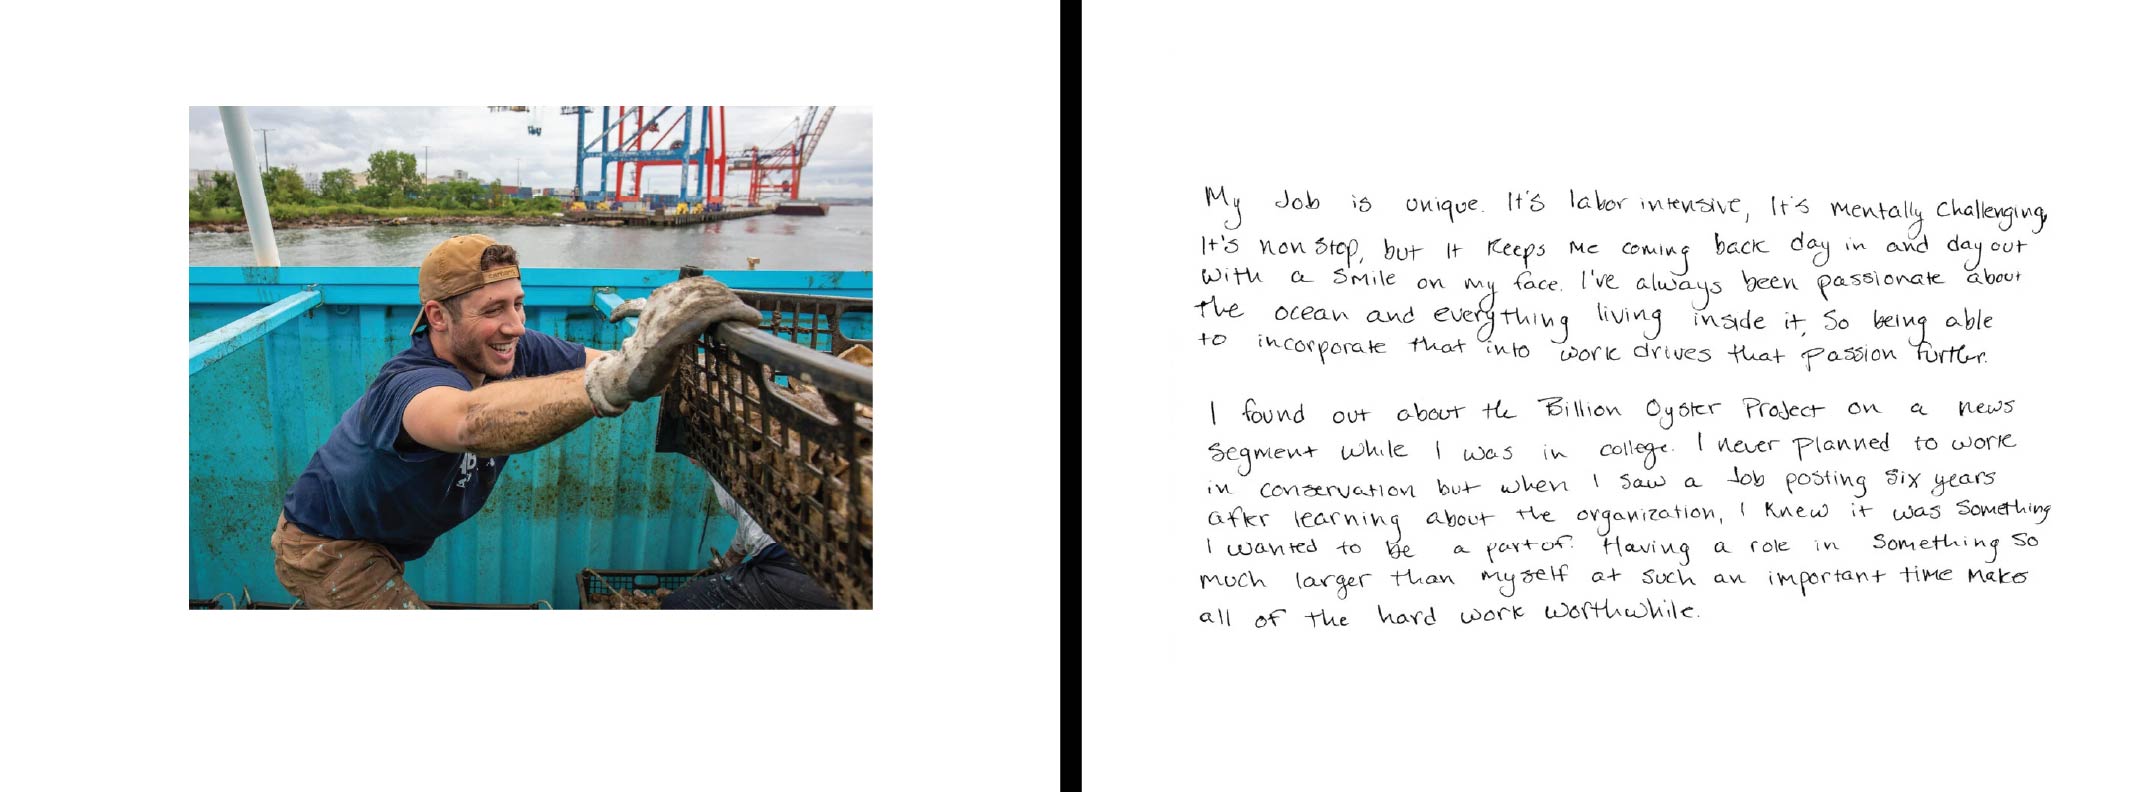 carhartt
My Job is unique. It's labor intensive, It's mentally challenging,
It's non stop, but It keeps me coming back day in and day out
with a smile on my face. I've always been passionate about
the ocean and everything living inside it, So being able
to incorporate that into work drives that passion further.
I found out about the Billion Oyster Project on a news
segment while I was in college. I never planned to work
in conservation but when I saw a Job posting six years
after learning about the organization, I knew it was something
I wanted to be a part of. Having a role in something so
much larger than myself at such an important time makes
all of the hard work worthwhile.